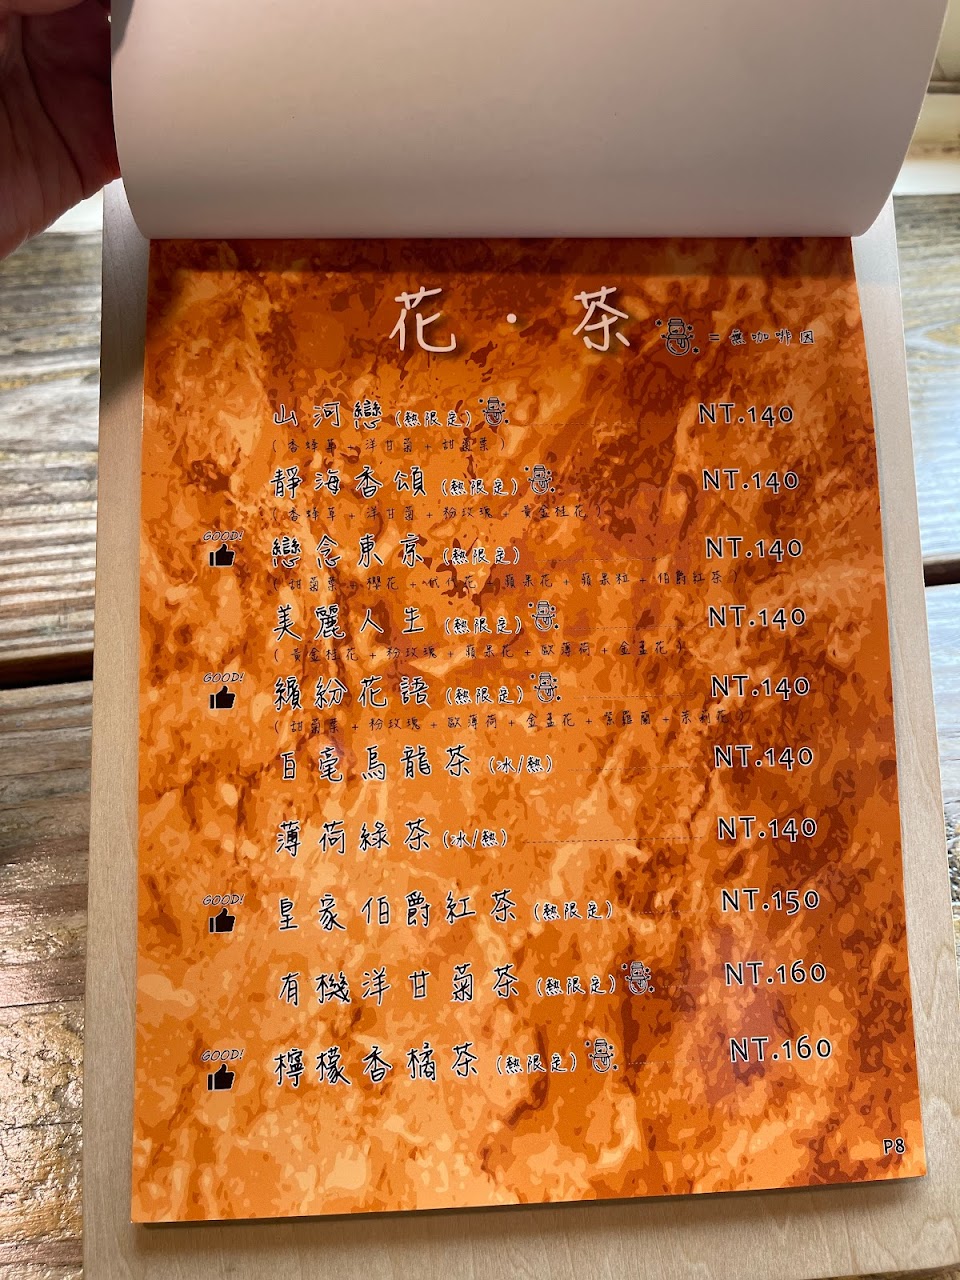 花・茶 = 無咖啡因
山河戀(熱限定) NT.140
(香蜂草+洋甘菊+甜菊葉)
靜海香頌(熱限定) NT.140
(香蜂草+洋甘菊+粉玫瑰+黃金桂花)
GOOD! 戀念東京(熱限定) NT.140
(甜菊葉+櫻花+千代花+蘋果花+蘋果粒+伯爵紅茶)
美麗人生(熱限定) NT.140
(黃金桂花+粉玫瑰+蘋果花+歐薄荷+金盞花)
GOOD! 繽紛花語(熱限定) NT.140
(甜菊葉+粉玫瑰+歐薄荷+金盞花+紫羅蘭+茉莉花)
白毫烏龍茶(冰/熱) NT.140
薄荷綠茶(冰/熱) NT.140
GOOD! 皇家伯爵紅茶(熱限定) NT.150
有機洋甘菊茶(熱限定) NT.160
GOOD! 檸檬香橘茶(熱限定) NT.160
P8